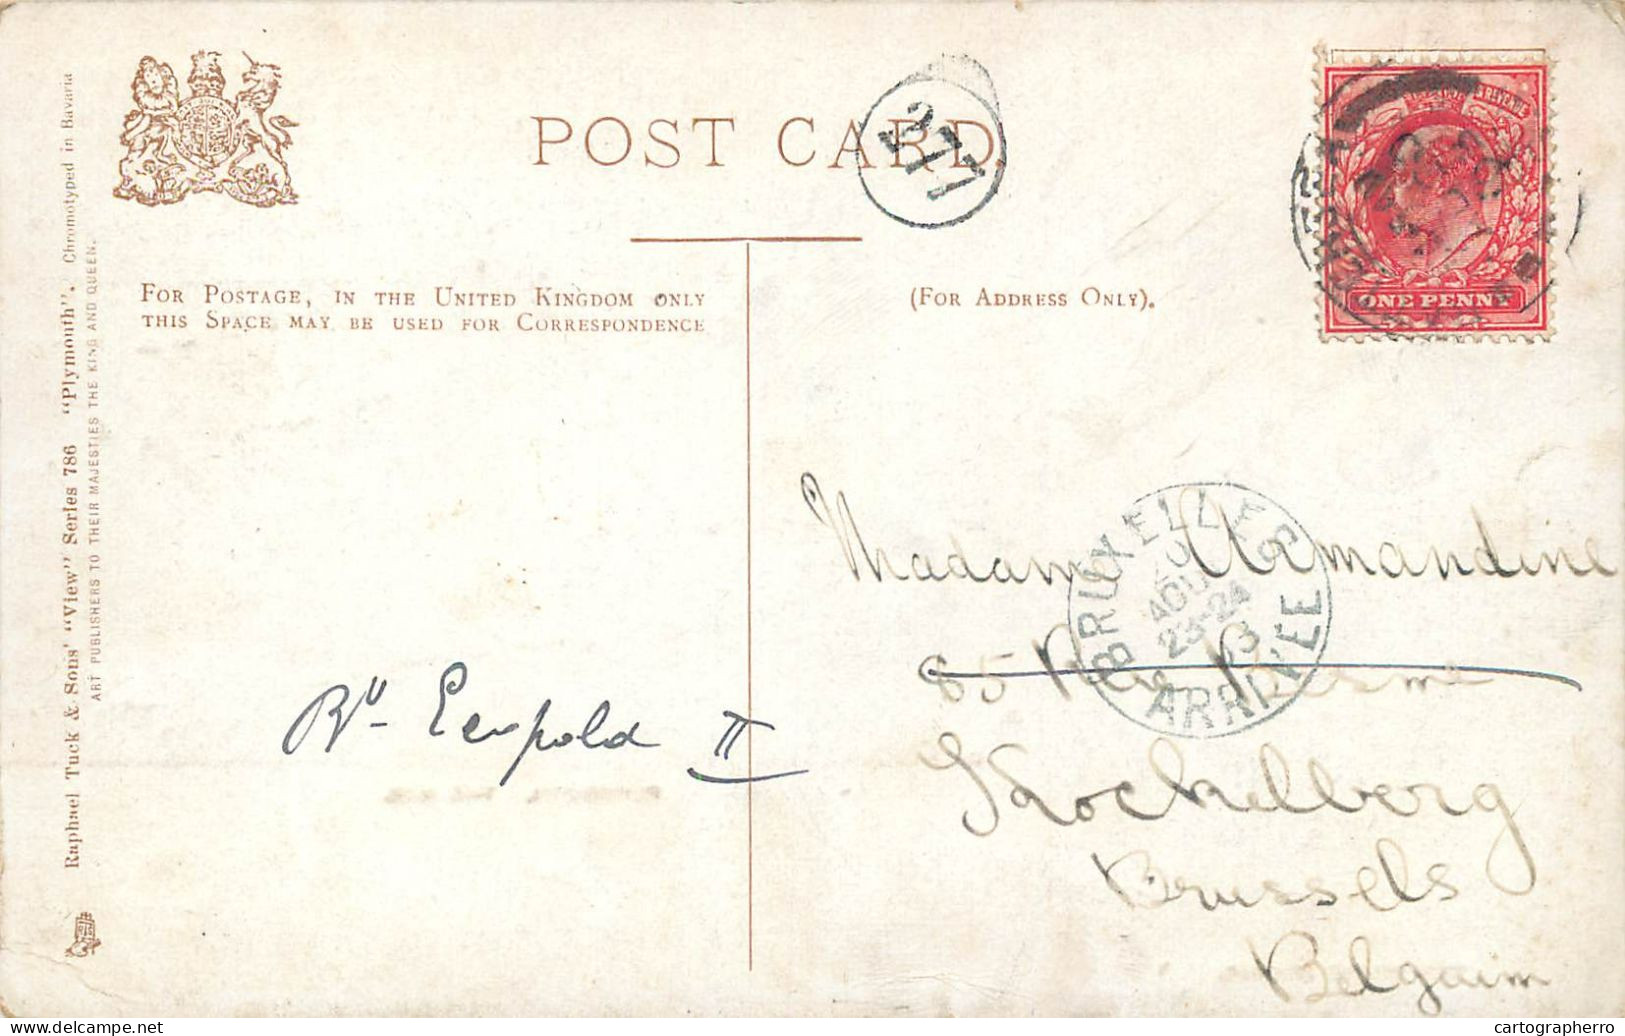 Raphael Tuck & Sons' "View" Series 786 "Plymouth". Chromotyped in Bavaria
ART PUBLISHERS TO THEIR MAJESTIES THE KING AND QUEEN.
POST CARD
377
FOR POSTAGE, IN THE UNITED KINGDOM ONLY
THIS SPACE MAY BE USED FOR CORRESPONDENCE
(FOR ADDRESS ONLY).
ONE PENNY
BRUXELLES
AOU
23-24
ARRIVÉE
Madame Armandine
85 Rue
Kockelberg
Brussels
Belgaim
Bd Leopold II
cartographerro